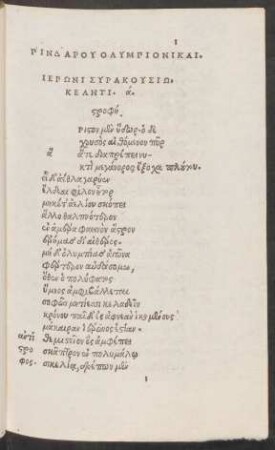 1
ΠΙΝΔΑΡΟΥ ΟΛΥΜΠΙΟΝΙΚΑΙ.
ΙΕΡΩΝΙ ΣΥΡΑΚΟΥΣΙΩ.
ΚΕΛΗΤΙ. ά.
στροφή.
ριστον μὲν ὕδωρ. ὁ δὲ
χρυσὸς αἰθόμενον πῦρ
ἄ ἅτε διαπρέπει νυ-
κτὶ μεγάνορος ἔξοχα πλούτου.
εἰ δ' ἄεθλα γαρύεν
ἔλδεαι φίλον ἦτορ
μηκέτ' ἀελίου σκόπει
ἄλλο θαλπνότερον
ἐν ἁμέρᾳ φαεινὸν ἄστρον
ἐρήμας δι' αἰθέρος.
μηδ' ὀλυμπίας ἀγῶνα
φέρτερον αὐδάσομεν,
ὅθεν ὁ πολύφατος
ὕμνος ἀμφιβάλλεται
σοφῶν μητίεσσι κελαδεῖν
κρόνου παῖδ' ἐς ἀφνεὰν ἱκομένους
μάκαιραν ἱέρωνος ἑστίαν.
ἀντι θεμιστεῖον ὃς ἀμφέπει
στρο σκᾶπτρον ἐν πολυμάλῳ
φος. σικελίᾳ, δρέπων μὲν
1